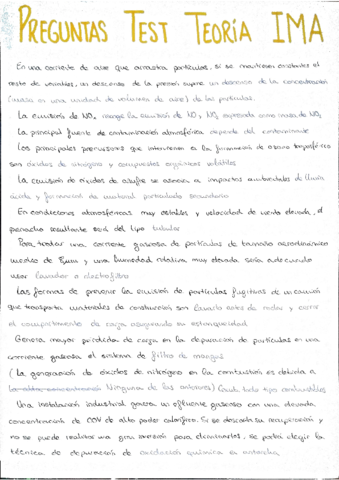 PREGUNTAS TEST TEORÍA IMA
En una corriente de aire que arrastra partículas, si se mantienen constantes el
resto de variables, un descenso de la presión supone un descenso de la concentración
(masa en una unidad de volumen de aire) de las partículas.
La emisión de NOx recoge la emisión de NO y NO2 expresada como masa de NO2
La principal fuente de contaminación atmosférica depende del contaminante
Los principales precursores que intervienen en la formación de ozono troposférico
son óxidos de nitrógeno y compuestos orgánicos volátiles
La emisión de óxidos de azufre se asocia a impactos ambientales de lluvia
ácida y formación de material particulado secundario
En condiciones atmosféricas muy estables y velocidad de viento elevada, el
penacho resultante será del tipo tubular
Para tratar una corriente gaseosa de partículas de tamaño aerodinámico
medio de 5μm y una humedad relativa muy elevada, sería adecuado
usar lavador o electrofiltro
Las formas de prevenir la emisión de partículas fugitivas de un camión
que transporta materiales de construcción son lavarlo antes de rodar y cerrar
el compartimento de carga asegurando su estanqueidad
Genera mayor pérdida de carga en la depuración de partículas en una
corriente gaseosa el sistema de filtro de mangas
(La generación de óxidos de nitrógeno en la combustión es debida a
Ninguna de las anteriores)
Una instalación industrial genera un efluente gaseoso con una elevada
concentración de COV de alto poder calorífico. Si se descarta su recuperación y
no se puede realizar una gran inversión para eliminarlos, se podría elegir la
técnica de depuración de oxidación química en antorcha